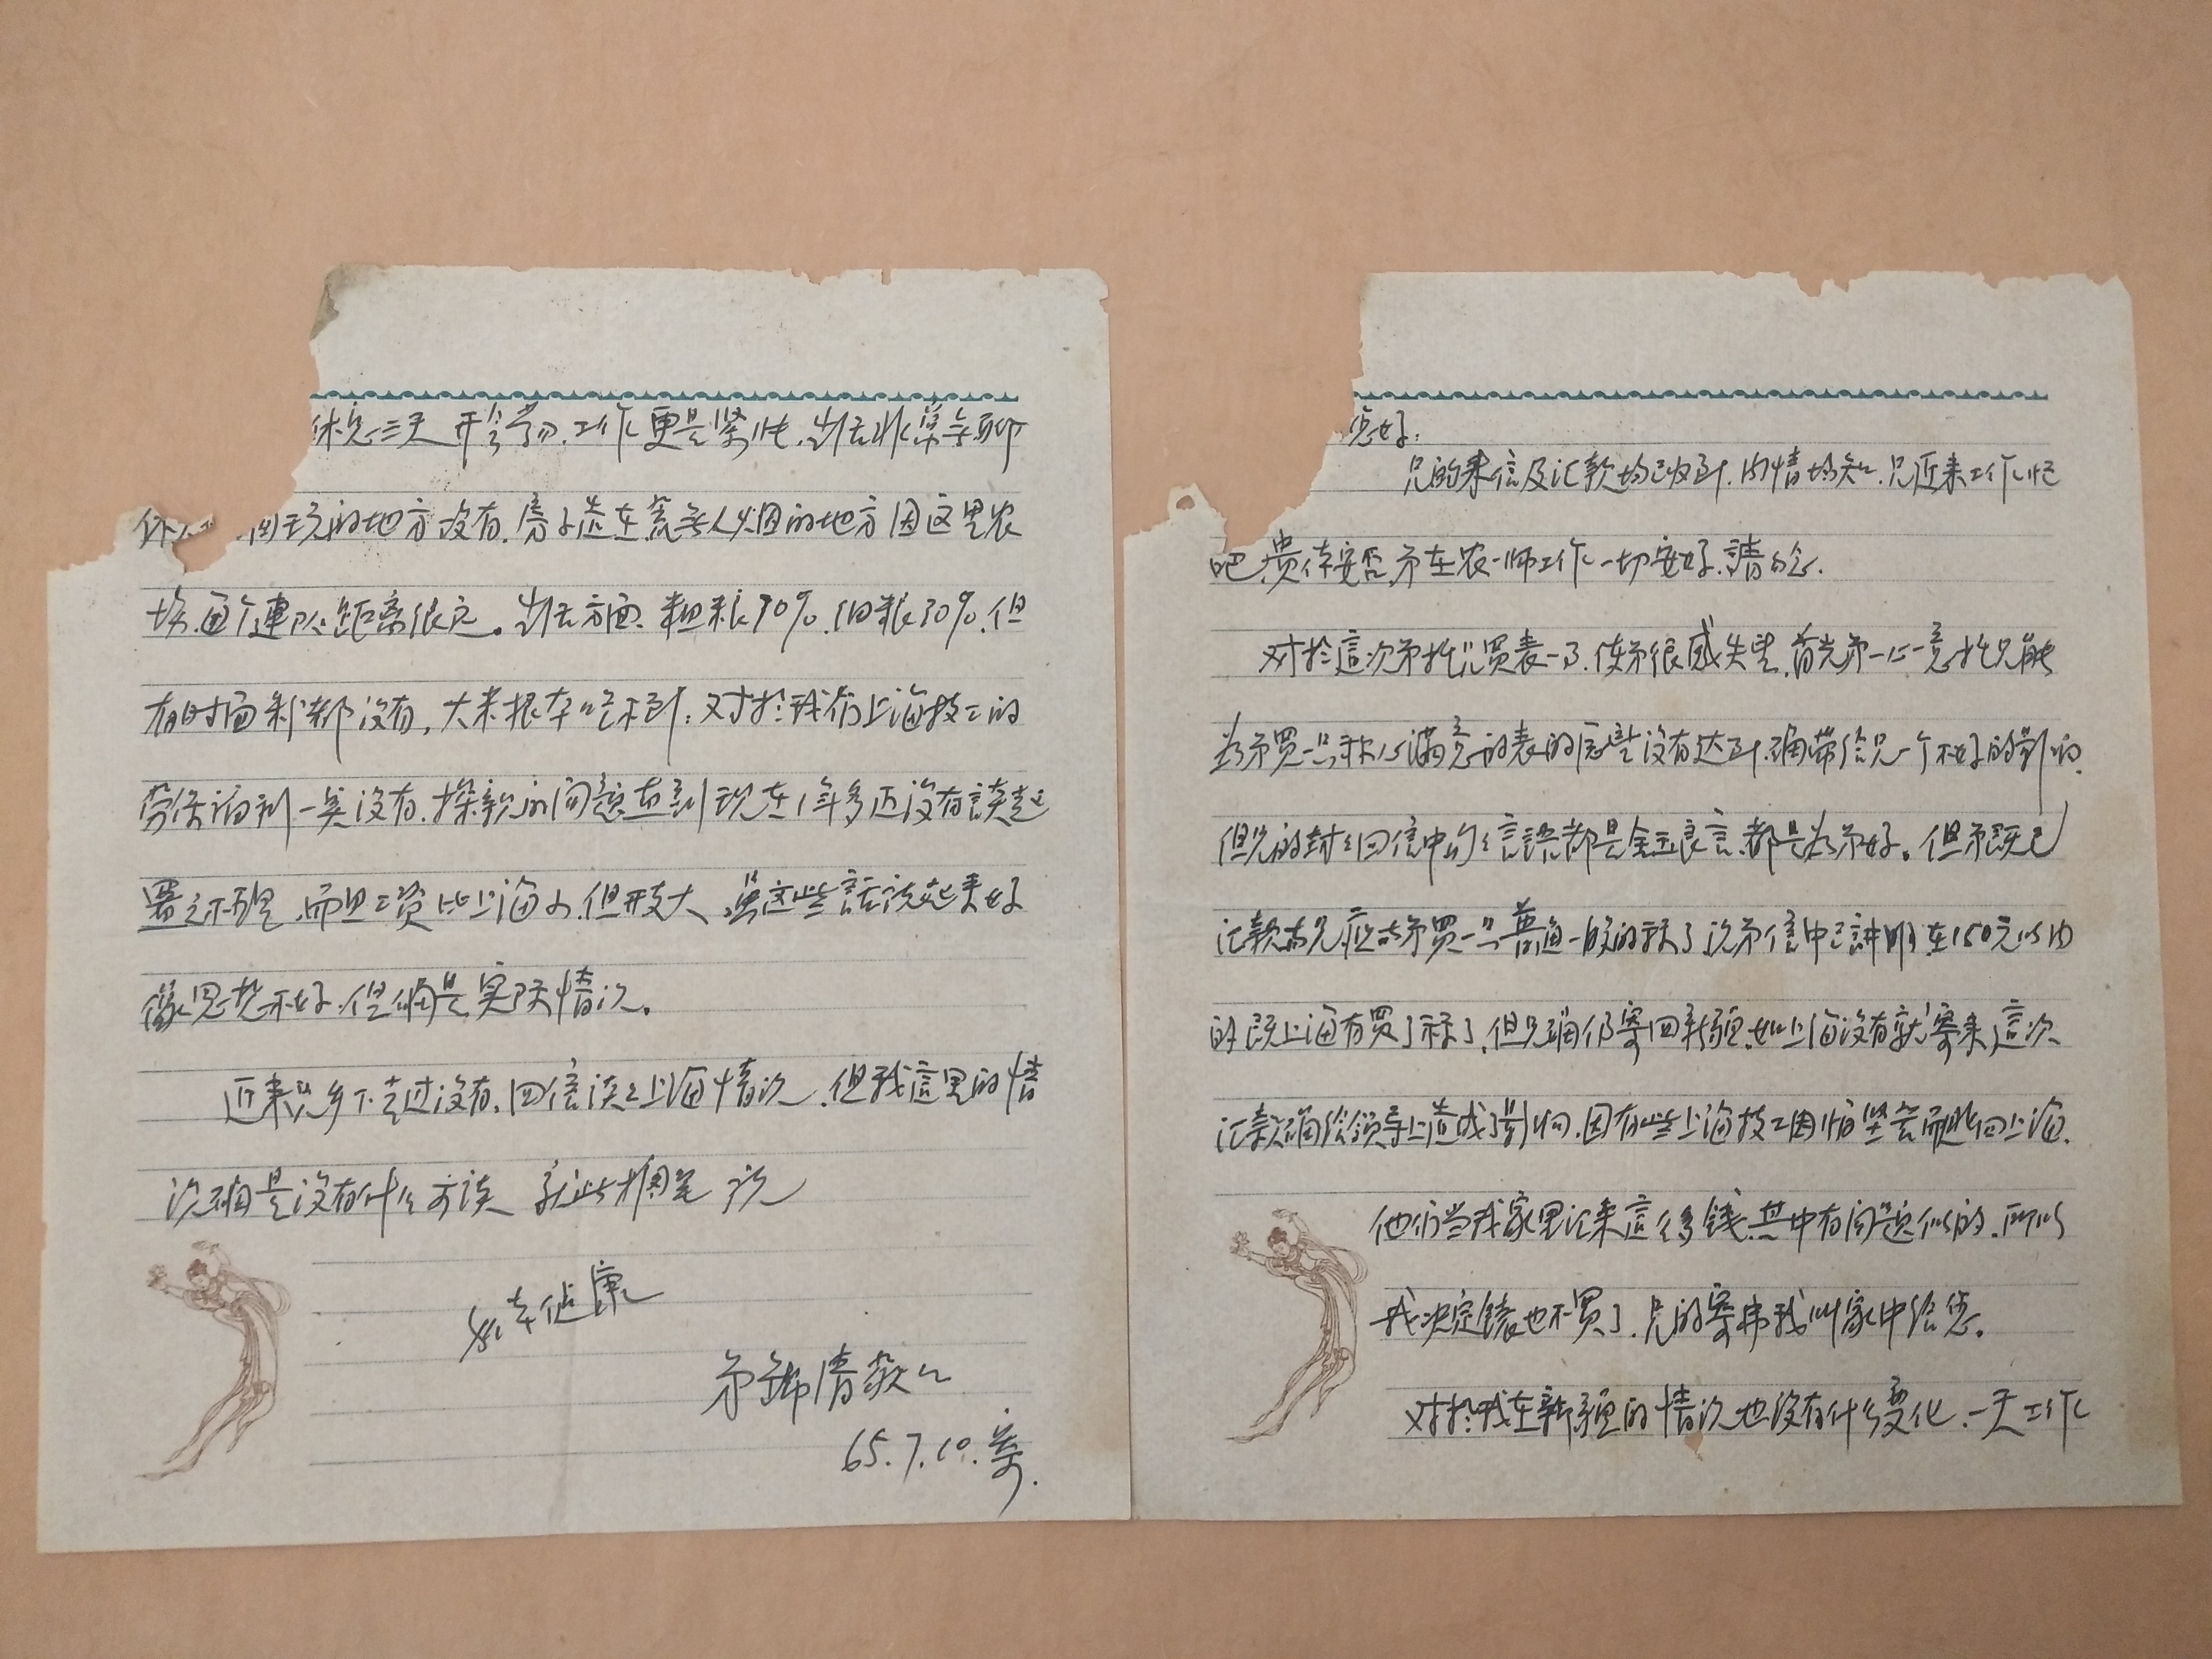 您好：
兄的来信及汇款均已收到.内情均知.兄近来工作忙
吧.贵体安否.弟在农一师工作一切安好.請勿念.
对於這次弟托兄買表一事.使弟很感失望.首先弟一心一意托兄能
为弟買一只称心满意的表的愿望没有达到.确帶给兄一个不好的影响.
但兄的封封回信中句句言語都是金玉良言.都是为弟好。但弟既已
汇款.兄应帮弟買一只普通一般的算了.况弟信中已讲明在150元以内
的.既上海有買了算了.但兄确仍寄回新疆.如上海没有就寄来.這次
汇款确给领导上造成了影响.因有些上海技工因怕坚苦而逃回上海.
他们当我家里汇来這么多錢.其中有问题似的.所以
我决定錶也不買了.兄的寄弗我叫家中给您。
对於我在新疆的情况也没有什么变化.一天工作
休息三天开会学习.工作更是紧忙.生活非常无聊
玩的地方没有.房子造在荒无人烟的地方因这里农
場.每个連队距离很远。生活方面.粗粮70%.细粮30%.但
有时面粉都没有,大米根本吃不到.对於我们上海技工的
劳保福利一点没有.探亲的问题直到现在1年多还没有談起
置之不理.而且工资比上海小.但开支大.虽这些話说起来好
像思想不好.但确是实际情况。
近来兄乡下去过没有.回信谈谈上海情况.但我這里的情
况确是没有什么可谈 就此搁笔 祝
身体健康
弟錦清敬上
65.7.10.草.